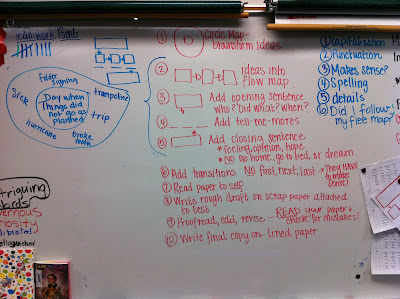 Teamwork Points
folder
signing
Sick
trampoline
Day when
things did
not go as
planned
trip
hurricane
broke
① Circle Map-
brainstorm ideas
② Ideas into
flow map
③ Add opening sentence
who? Did what? when?
④ Add tell-me-mores
⑤ Add closing sentence
*feeling, opinion, hope
*NO go home, go to bed, or dream
⑥ Add transitions. NO first, next, last → They HAVE
to make
sense!
⑦ Read paper to self
⑧ Write rough draft on scrap paper attached
to test
⑨ Proofread, edit, revise - READ your paper &
check for mistakes!
⑩ Write final copy on lined paper
① Capitalization
② Punctuation
③ Makes sense?
④ Spelling
⑤ details
⑥ Did I follow
my flee map?